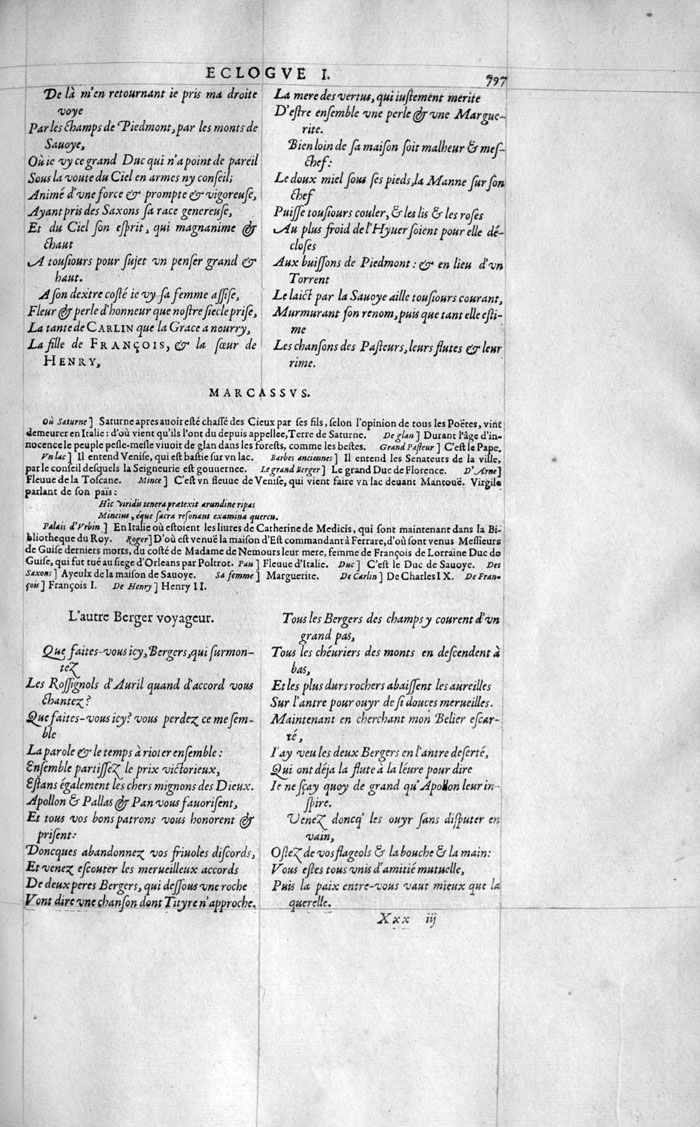 ECLOGVE I.
797
De là m'en retournant ie pris ma droite
voye
Par les champs de Piedmont, par les monts de
Sauoye,
Où ie vy ce grand Duc qui n'a point de pareil
Sous la voute du Ciel en armes ny conseil;
Animé d'vne force & prompte & vigoreuse,
Ayant pris des Saxons sa race genereuse,
Et du Ciel son esprit, qui magnanime &
chaut
A tousiours pour sujet vn penser grand &
haut.
A son dextre costé ie vy sa femme assise,
Fleur & perle d'honneur que nostre siecle prise,
La tante de CARLIN que la Grace a nourry,
La fille de FRANÇOIS, & la sœur de
HENRY,
La mere des vertus, qui iustement merite
D'estre ensemble vne perle & vne Margue-
rite.
Bien loin de sa maison soit malheur & mes-
chef:
Le doux miel sous ses pieds, la Manne sur son
chef
Puisse tousiours couler, & les lis & les roses
Au plus froid de l'Hyuer soient pour elle dé-
closes
Aux buissons de Piedmont: & en lieu d'vn
Torrent
Le laict par la Sauoye aille tousiours courant,
Murmurant son renom, puis que tant elle esti-
me
Les chansons des Pasteurs, leurs flutes & leur
rime.
MARCASSVS.
Où Saturne] Saturne apres auoir esté chassé des Cieux par ses fils, selon l'opinion de tous les Poëtes, vint
demeurer en Italie: d'où vient qu'ils l'ont du depuis appellee, Terre de Saturne. De glan] Durant l'âge d'in-
nocence le peuple pesle-mesle viuoit de glan dans les forests, comme les bestes. Grand Pasteur] C'est le Pape.
Vn lac] Il entend Venise, qui est bastie sur vn lac. Barbes anciennes] Il entend les Senateurs de la ville,
par le conseil desquels la Seigneurie est gouuernee. Le grand Berger] Le grand Duc de Florence. D'Arne]
Fleuue de la Toscane. Mince] C'est vn fleuue de Venise, qui vient faire vn lac deuant Mantouë. Virgile
parlant de son païs:
Hîc viridis tenera prætexit arundine ripas
Mincius, éque sacra resonant examina quercu.
Palais d'Vrbin] En Italie où estoient les liures de Catherine de Medicis, qui sont maintenant dans la Bi-
bliotheque du Roy. Roger] D'où est venuë la maison d'Est commandant à Ferrare, d'où sont venus Messieurs
de Guise derniers morts, du costé de Madame de Nemours leur mere, femme de François de Lorraine Duc de
Guise, qui fut tué au siege d'Orleans par Poltrot. Pau] Fleuue d'Italie. Duc] C'est le Duc de Sauoye. Des
Saxons] Ayeulx de la maison de Sauoye. Sa femme] Marguerite. De Carlin] De Charles IX. De Fran-
çois] François I. De Henry] Henry II.
L'autre Berger voyageur.
Que faites-vous icy, Bergers, qui surmon-
tez
Les Rossignols d'Auril quand d'accord vous
chantez?
Que faites-vous icy? vous perdez ce me sem-
ble
La parole & le temps à rioter ensemble:
Ensemble partissez le prix victorieux,
Estans également les chers mignons des Dieux.
Apollon & Pallas & Pan vous fauorisent,
Et tous vos bons patrons vous honorent &
prisent:
Doncques abandonnez vos friuoles discords,
Et venez escouter les merueilleux accords
De deux peres Bergers, qui dessous vne roche
Vont dire vne chanson dont Tityre n'approche.
Tous les Bergers des champs y courent d'vn
grand pas,
Tous les chéuriers des monts en descendent à
bas,
Et les plus durs rochers abaissent les aureilles
Sur l'antre pour ouyr de si douces merueilles.
Maintenant en cherchant mon Belier escar-
té,
I'ay veu les deux Bergers en l'antre deserté,
Qui ont déja la flute à la léure pour dire
Ie ne sçay quoy de grand qu'Apollon leur in-
spire.
Venez doncq' les ouyr sans disputer en
vain,
Ostez de vos flageols & la bouche & la main:
Vous estes tous vnis d'amitié mutuelle,
Puis la paix entre-vous vaut mieux que la
querelle.
Xxx iij